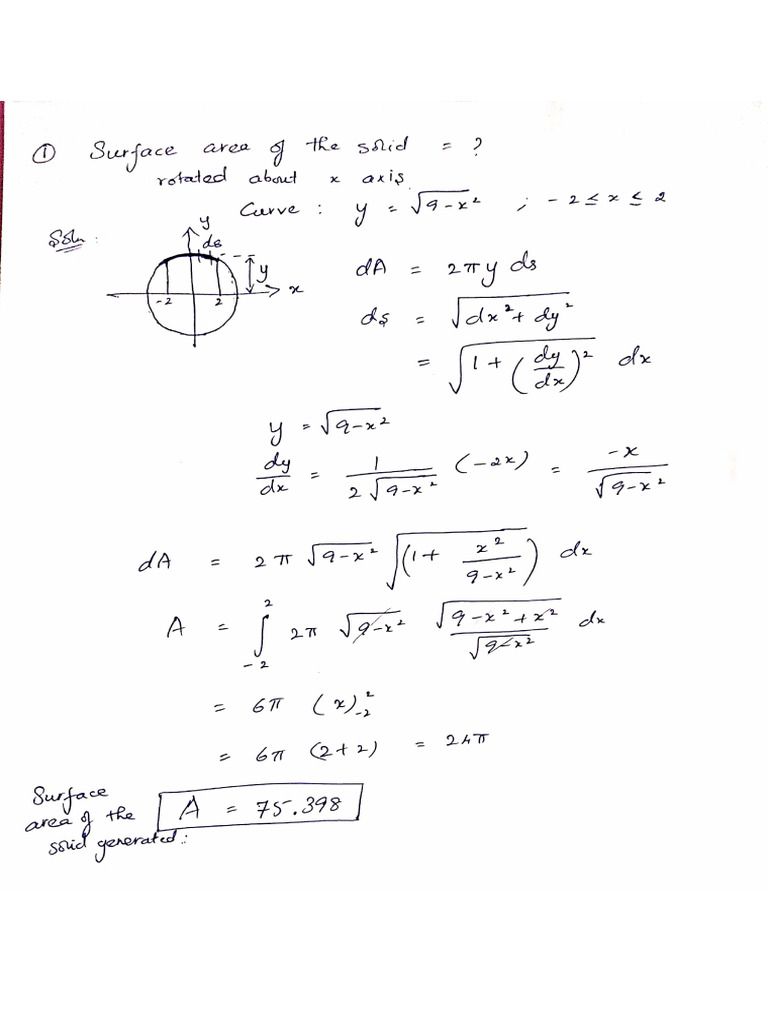 ① Surface area of the solid = ?
rotated about x axis
Curve : y = √(9-x²) ; -2 ≤ x ≤ 2
Soln :
y
ds
y
x
-2 2
dA = 2π y ds
ds = √(dx² + dy²)
= √(1 + (dy/dx)²) dx
y = √(9-x²)
dy/dx = 1/(2√(9-x²)) (-2x) = -x/√(9-x²)
dA = 2π √(9-x²) √(1 + x²/(9-x²)) dx
A = ∫_{-2}^{2} 2π √(9-x²) √(9-x²+x²)/√(9-x²) dx
= 6π (x)_{-2}^{2}
= 6π (2+2) = 24π
Surface
area of the
solid generated :
A = 75.398